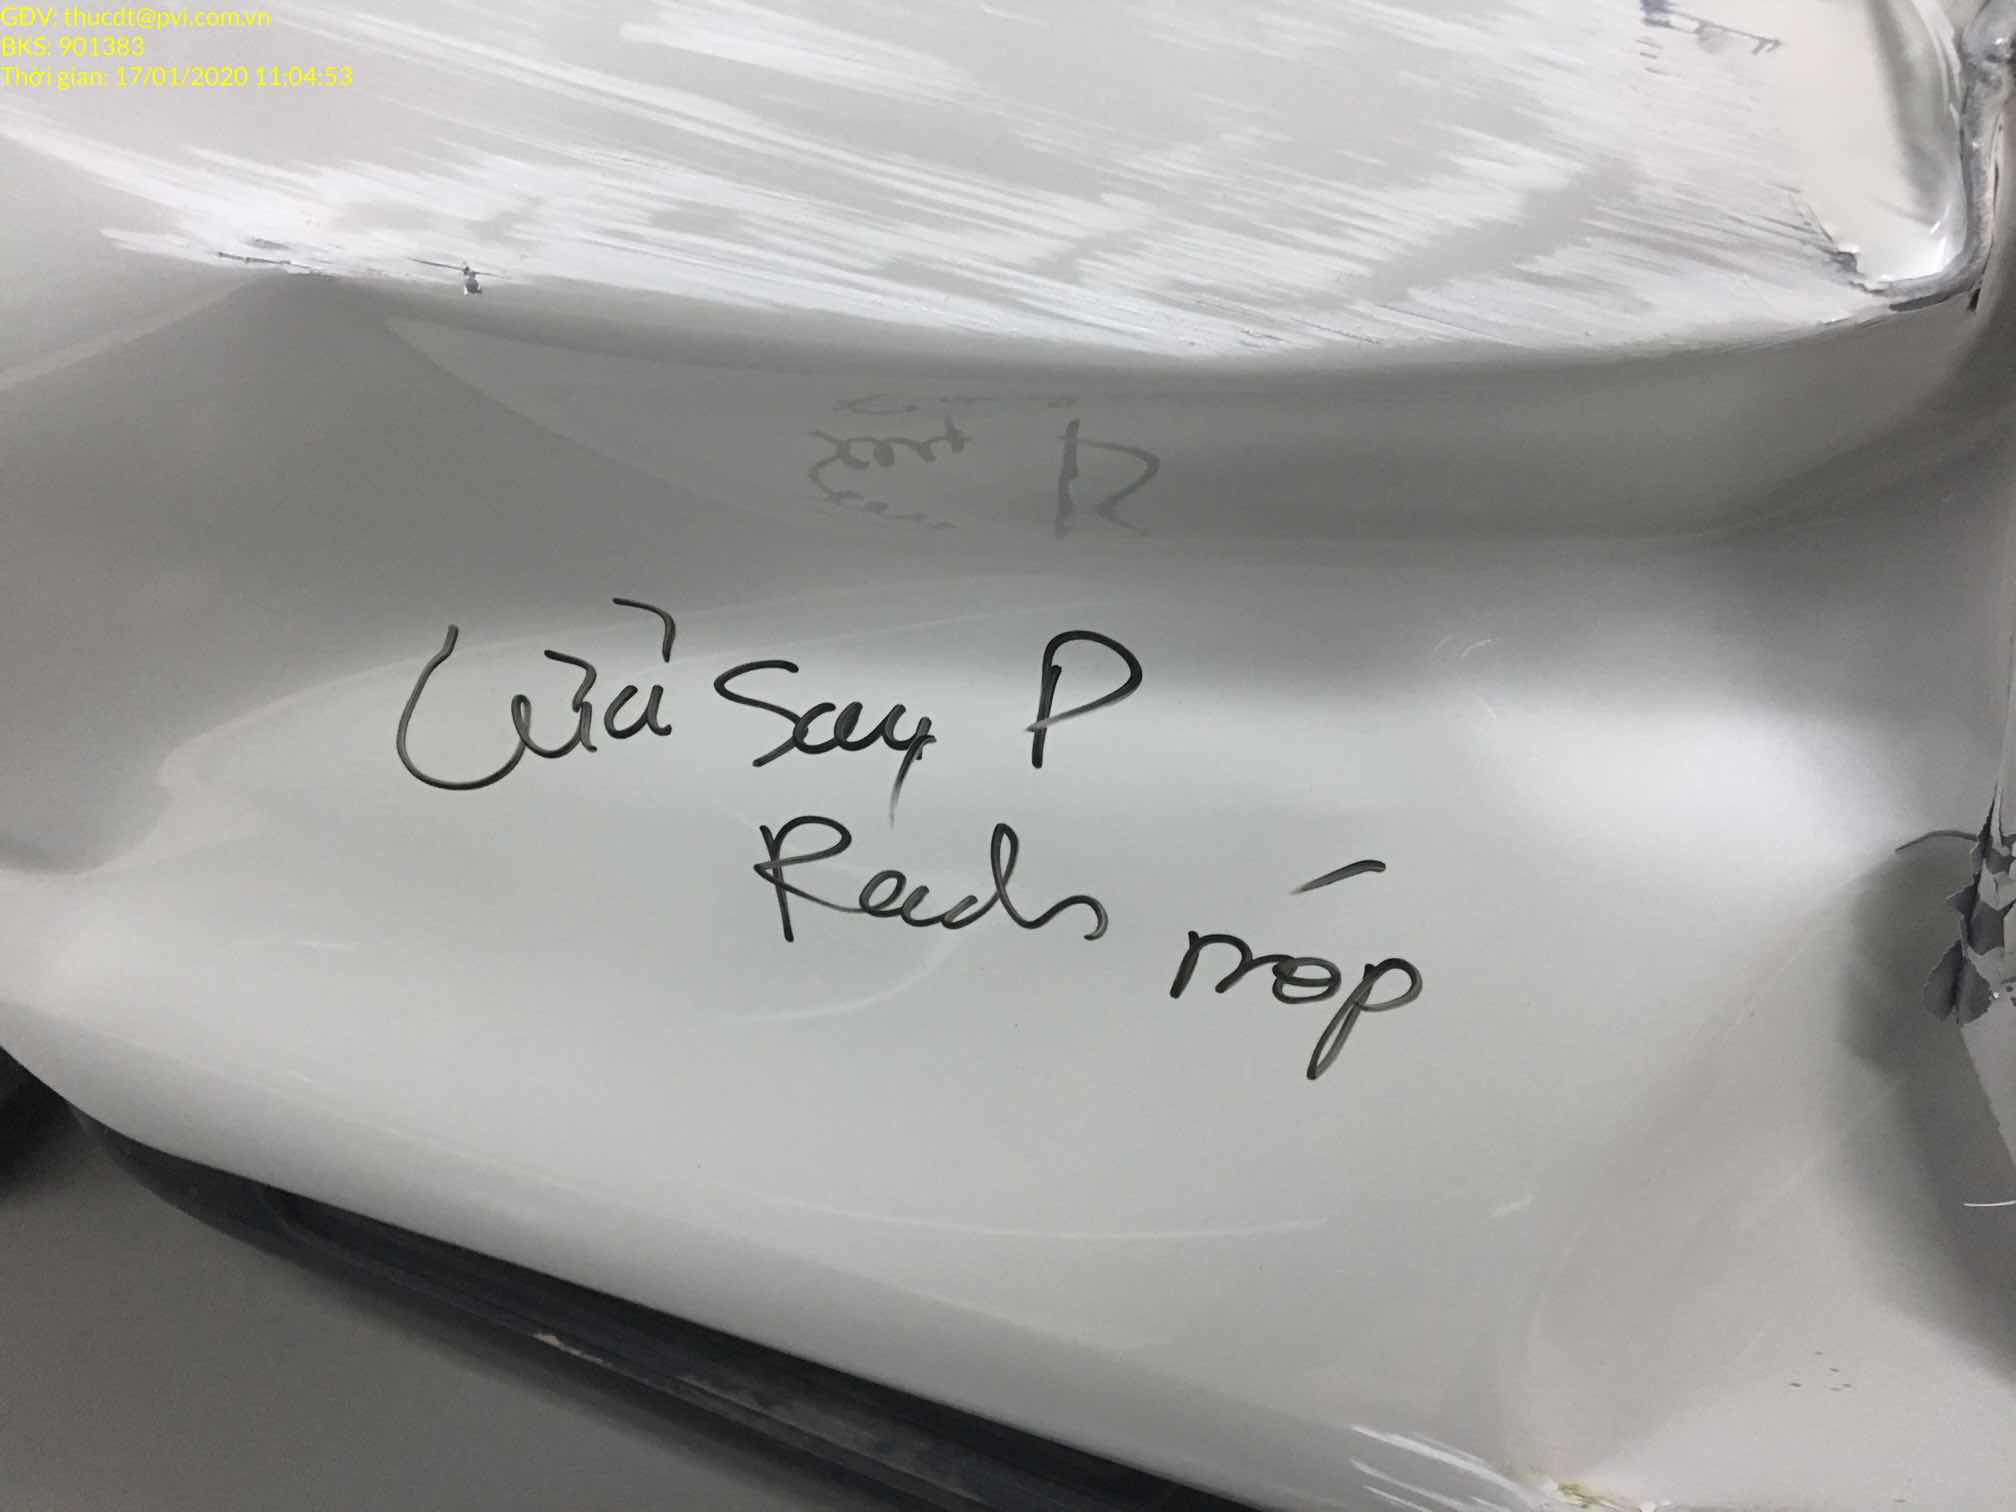 GDV: thucdt@pvi.com.vn
BKS: 901383
Thời gian: 17/01/2020 11:04:53
Cửa Say P
Rách
móp